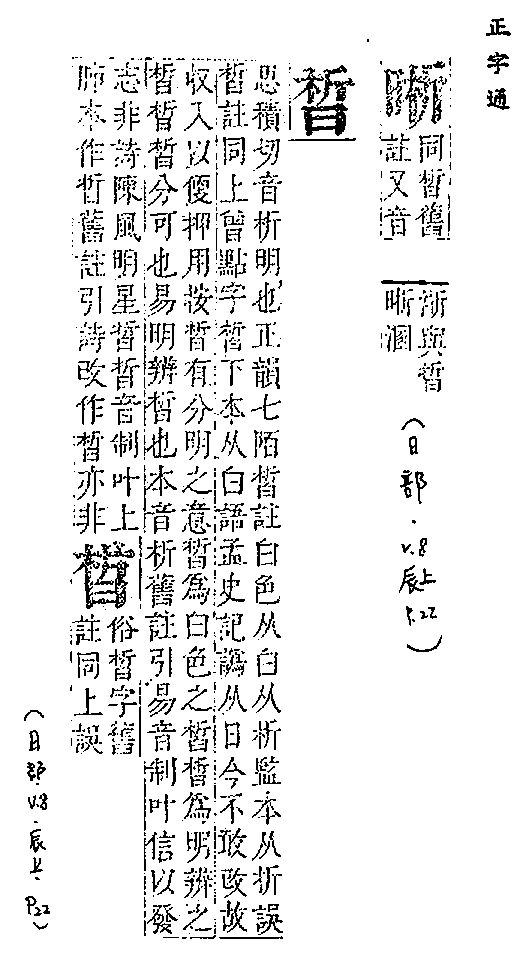 正字通
晣
同晳舊
註又音
淅與晳
晣溷
(日部.v.8辰上P.22)
晳
思積切音析明也正韻七陌晳註白色从白从析監本从折誤
晳註同上曾點字晳下本从白語孟史記譌从日今不敢改故
收入以復押用按晳有分明之意晳為白色之晳晳為明辨之
晳晳晳分可也易明辨晳也本音析舊註引易音制叶信以發
志非詩陳風明星晳晳音制叶上
肺本作晢舊註引詩改作晳亦非
俗晳字舊
註同上誤
(日部.v.8.辰上.P22)